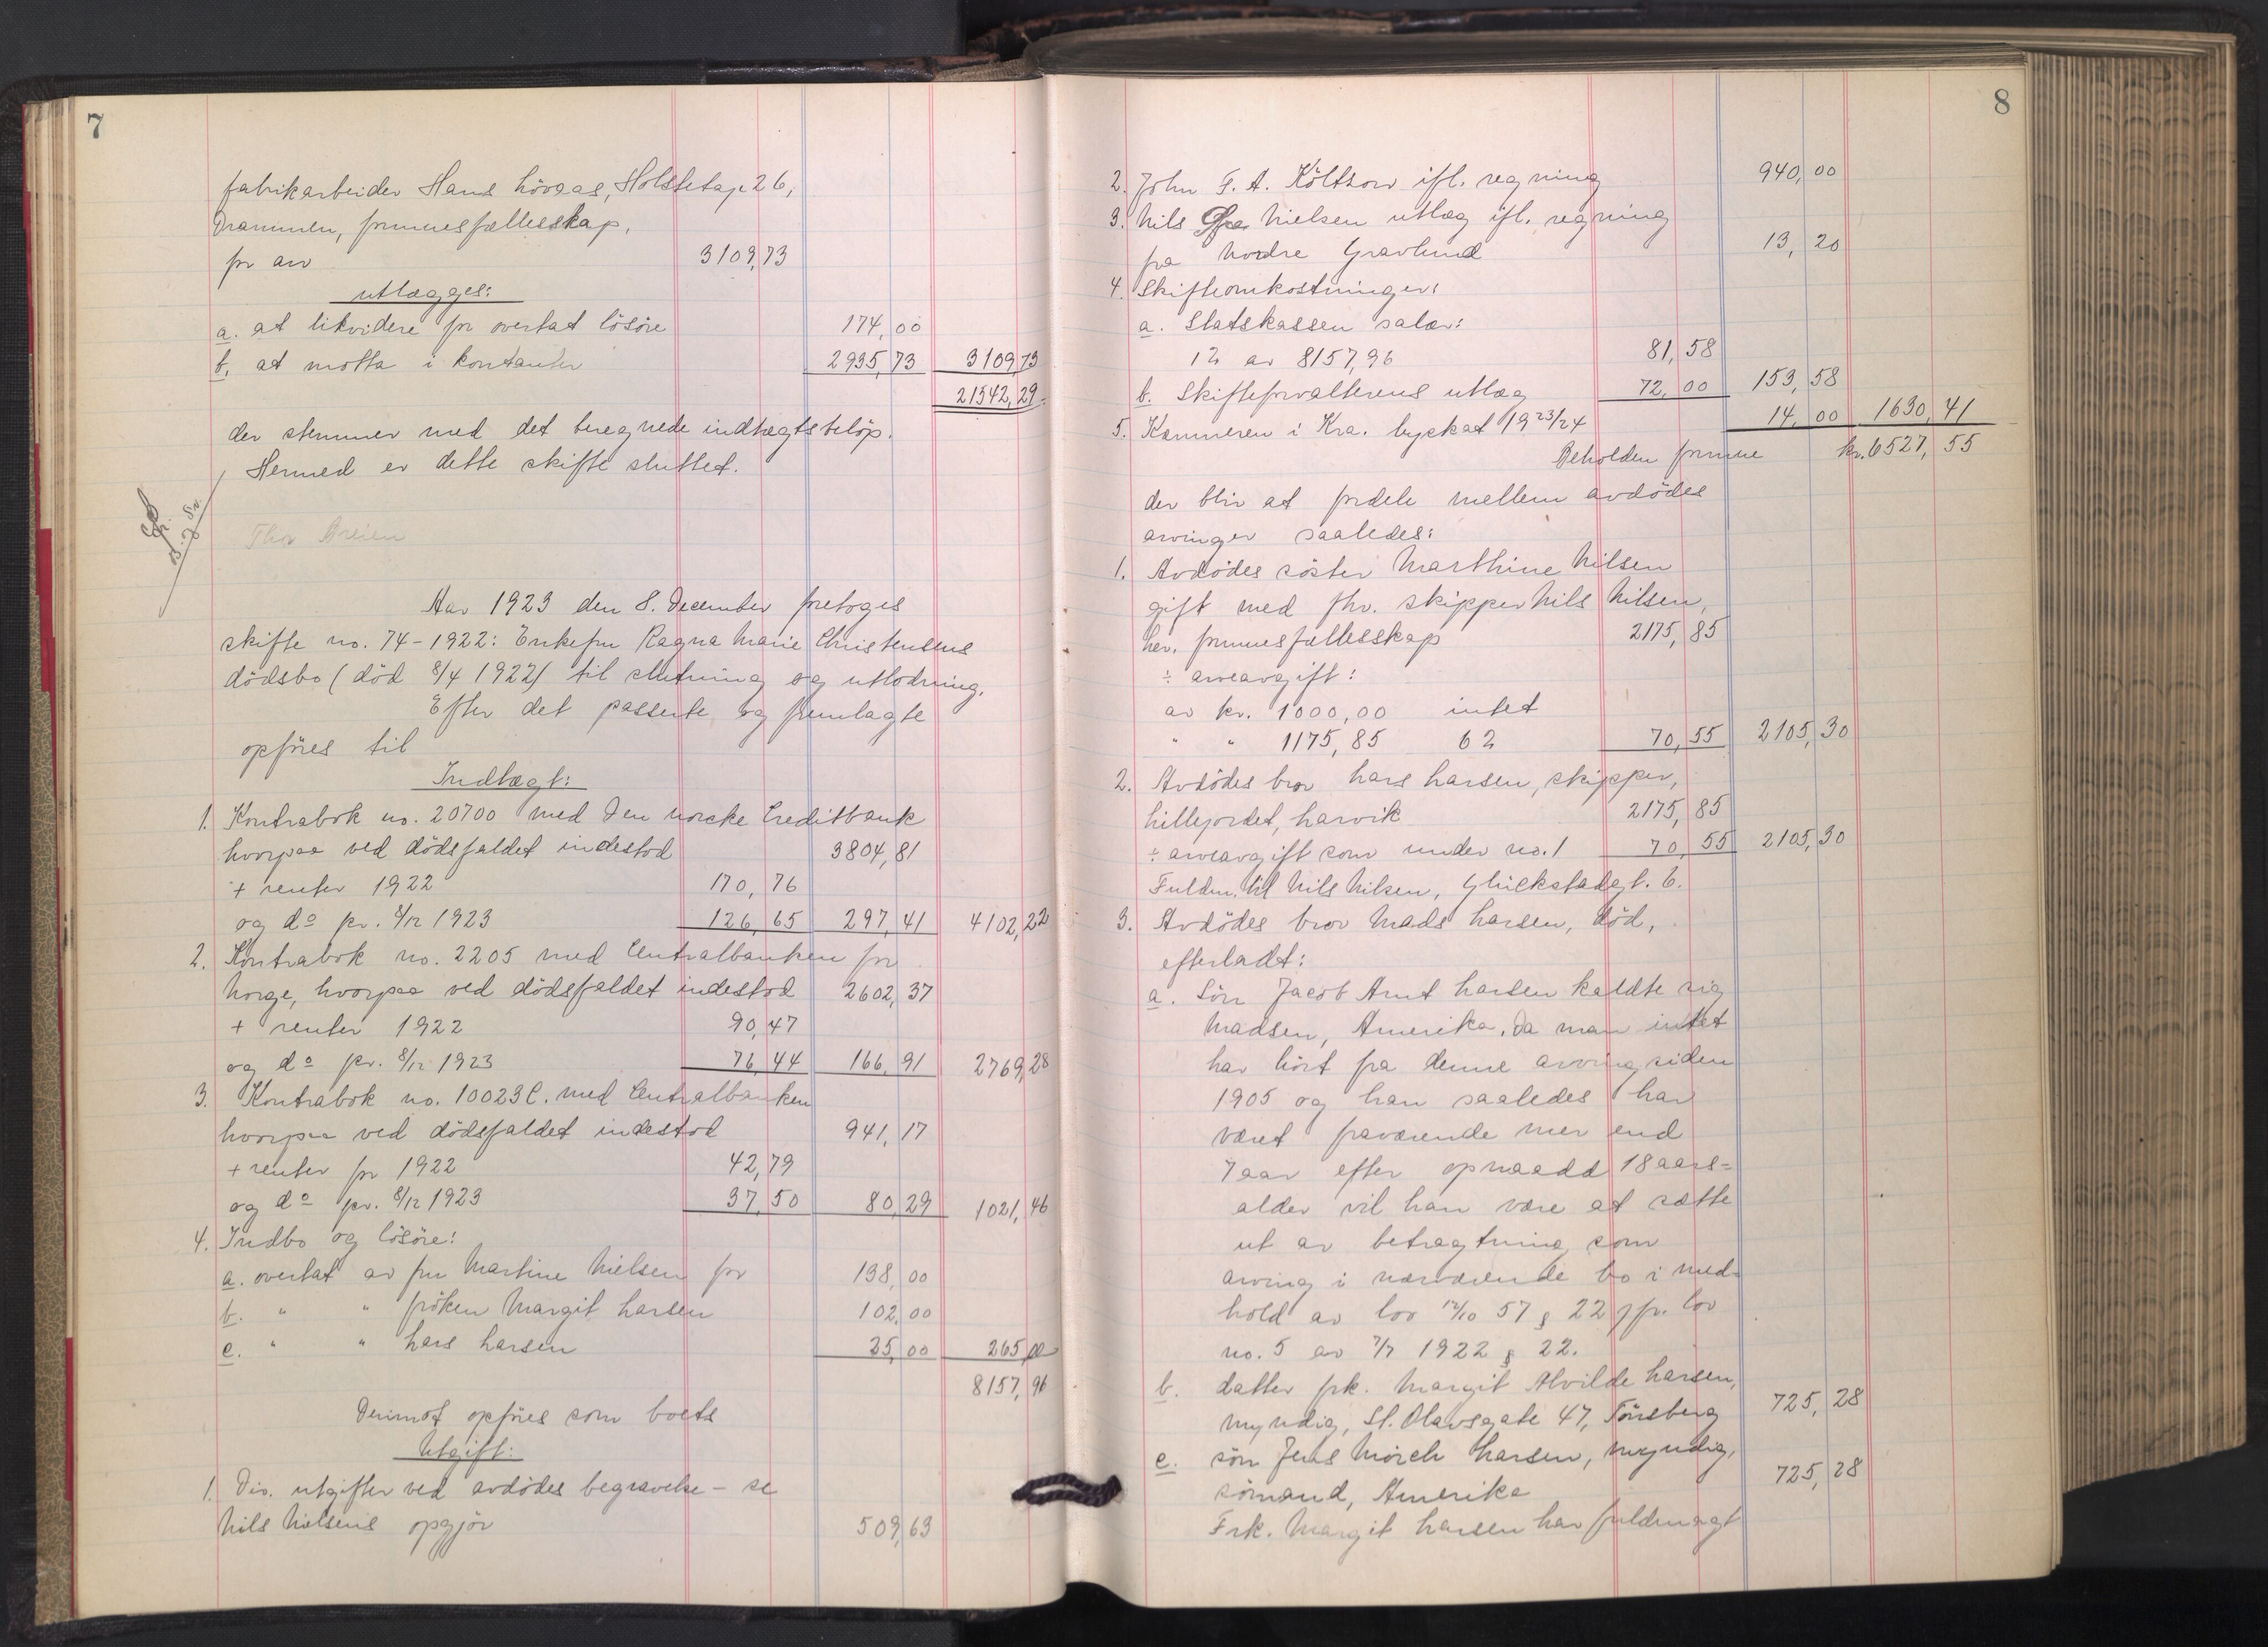 7
fabrikarbeider Hans Lövaas, Holstetagt. 26,
Drammen, formuesfællesskap,
for arv 3109,73
utlægges:
a. at likvidere for overtat lösöre 174,00
b. at motta i kontanter 2935,73 3109,73
21542,29.
der stemmer med det beregnede indtægtsbelöp.
Hermed er dette skifte sluttet.
Thor Breien
Aar 1923 den 8. December foretoges
skifte no. 74-1922: Enkefru Ragna Marie Christensens
dödsbo (död 8/4 1922) til slutning og utlodning.
Efter det passerte og fremlagte
opföres til
Indtægt:
1. Kontrabok no. 20700 med Den norske Creditbank
hvorpaa ved dödsfaldet indestod 3804,81
+ renter 1922 170,76
og do pr. 8/12 1923 126,65 297,41 4102,22
2. Kontrabok no. 2205 med Centralbanken for
Norge, hvorpaa ved dödsfaldet indestod 2602,37
+ renter 1922 90,47
og do pr. 8/12 1923 76,44 166,91 2769,28
3. Kontrabok no. 10023 C. med Centralbanken
hvorpaa ved dödsfaldet indestod 941,17
+ renter for 1922 42,79
og do pr. 8/12 1923 37,50 80,29 1021,46
4. Indbo og lösöre:
a. overtat av fru Martine Nielsen for 138,00
b. " " fröken Margit Larsen 102,00
c. " " Lars Larsen 25,00 265,00
8157,96
Derimot opföres som boets
Utgift:
1. Div. utgifter ved avdödes begravelse - se
Nils Nielsens opgjör 509,63
8
2. John F. A. Költzow ifl. regning 940,00
3. Nils Nielsen utlæg ifl. regning
fra Nordre Gravlund 13,20
4. Skifteomkostninger:
a. Statskassen salær:
1% av 8157,96 81,58
b. Skifteforvalterens utlæg 72,00 153,58
5. Kæmneren i Kra. byskat 1923/24 14,00 1630,41
Beholden formue kr. 6527,55
der blir at fordele mellem avdödes
arvinger saaledes:
1. Avdödes söster Marthine Nilsen
gift med fhv. skipper Nils Nilsen,
her, formuesfællesskap 2175,85
÷ arveavgift:
av kr. 1000,00 intet
" " 1175,85 6% 70,55 2105,30
2. Avdödes bror Lars Larsen, skipper,
Lillejordet, Larvik 2175,85
÷ arveavgift som under no. 1 70,55 2105,30
Fuldm. til Nils Nilsen, Glückstadgt. 6.
3. Avdödes bror Mads Larsen, död,
efterladt:
a. Sön Jacob Arnt Larsen kaldte sig
Madsen, Amerika. Da man intet
har hört fra denne arving siden
1905 og han saaledes har
været fraværende mer end
7 aar efter opnaadd 18 aars-
alder vil han være at sætte
ut av betragtning som
arving i nærværende bo i med-
hold av lov 12/10 57 § 22 jfr. lov
no. 5 av 7/7 1922 § 22.
b. datter frk. Margit Alvilde Larsen,
myndig, St. Olavsgate 47, Tönsberg 725,28
c. sön Jens Mörch Larsen, myndig,
sömand, Amerika 725,28
Frk. Margit Larsen har fuldmagt